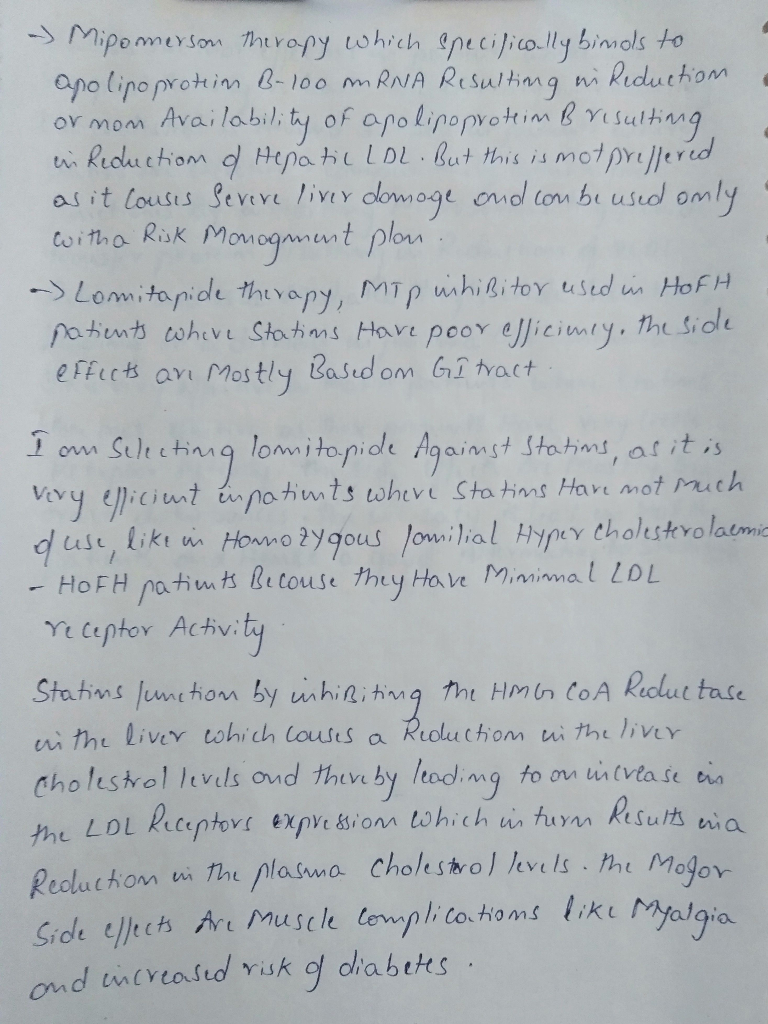 → Mipomerson therapy which specifically binds to
apolipoprotein B-100 mRNA Resulting in Reduction
or non Availability of apolipoprotein B resulting
in Reduction of Hepatic LDL. But this is not preffered
as it Causes Severe liver damage and can be used only
with a Risk Managment plan.
→ Lomitapide therapy, MTp inhiBitor used in HoFH
patients where Statins Have poor efficiency. The side
effects are Mostly Based on GI tract.
I am Selecting lomitapide Against Statins, as it is
very efficient in patients where Statins Have not much
of use, like in Homozygous familial Hyper Cholesterolaemia
- HoFH patients Because they Have Minimal LDL
receptor Activity.
Statins function by inhiBiting the HMG CoA Reductase
in the liver which causes a Reduction in the liver
Cholestrol levels and thereby leading to an increase in
the LDL Receptors expression which in turn Results in a
Reduction in the plasma Cholestrol levels. The Major
Side effects Are Muscle Complications like Myalgia
and increased risk of diabetes.